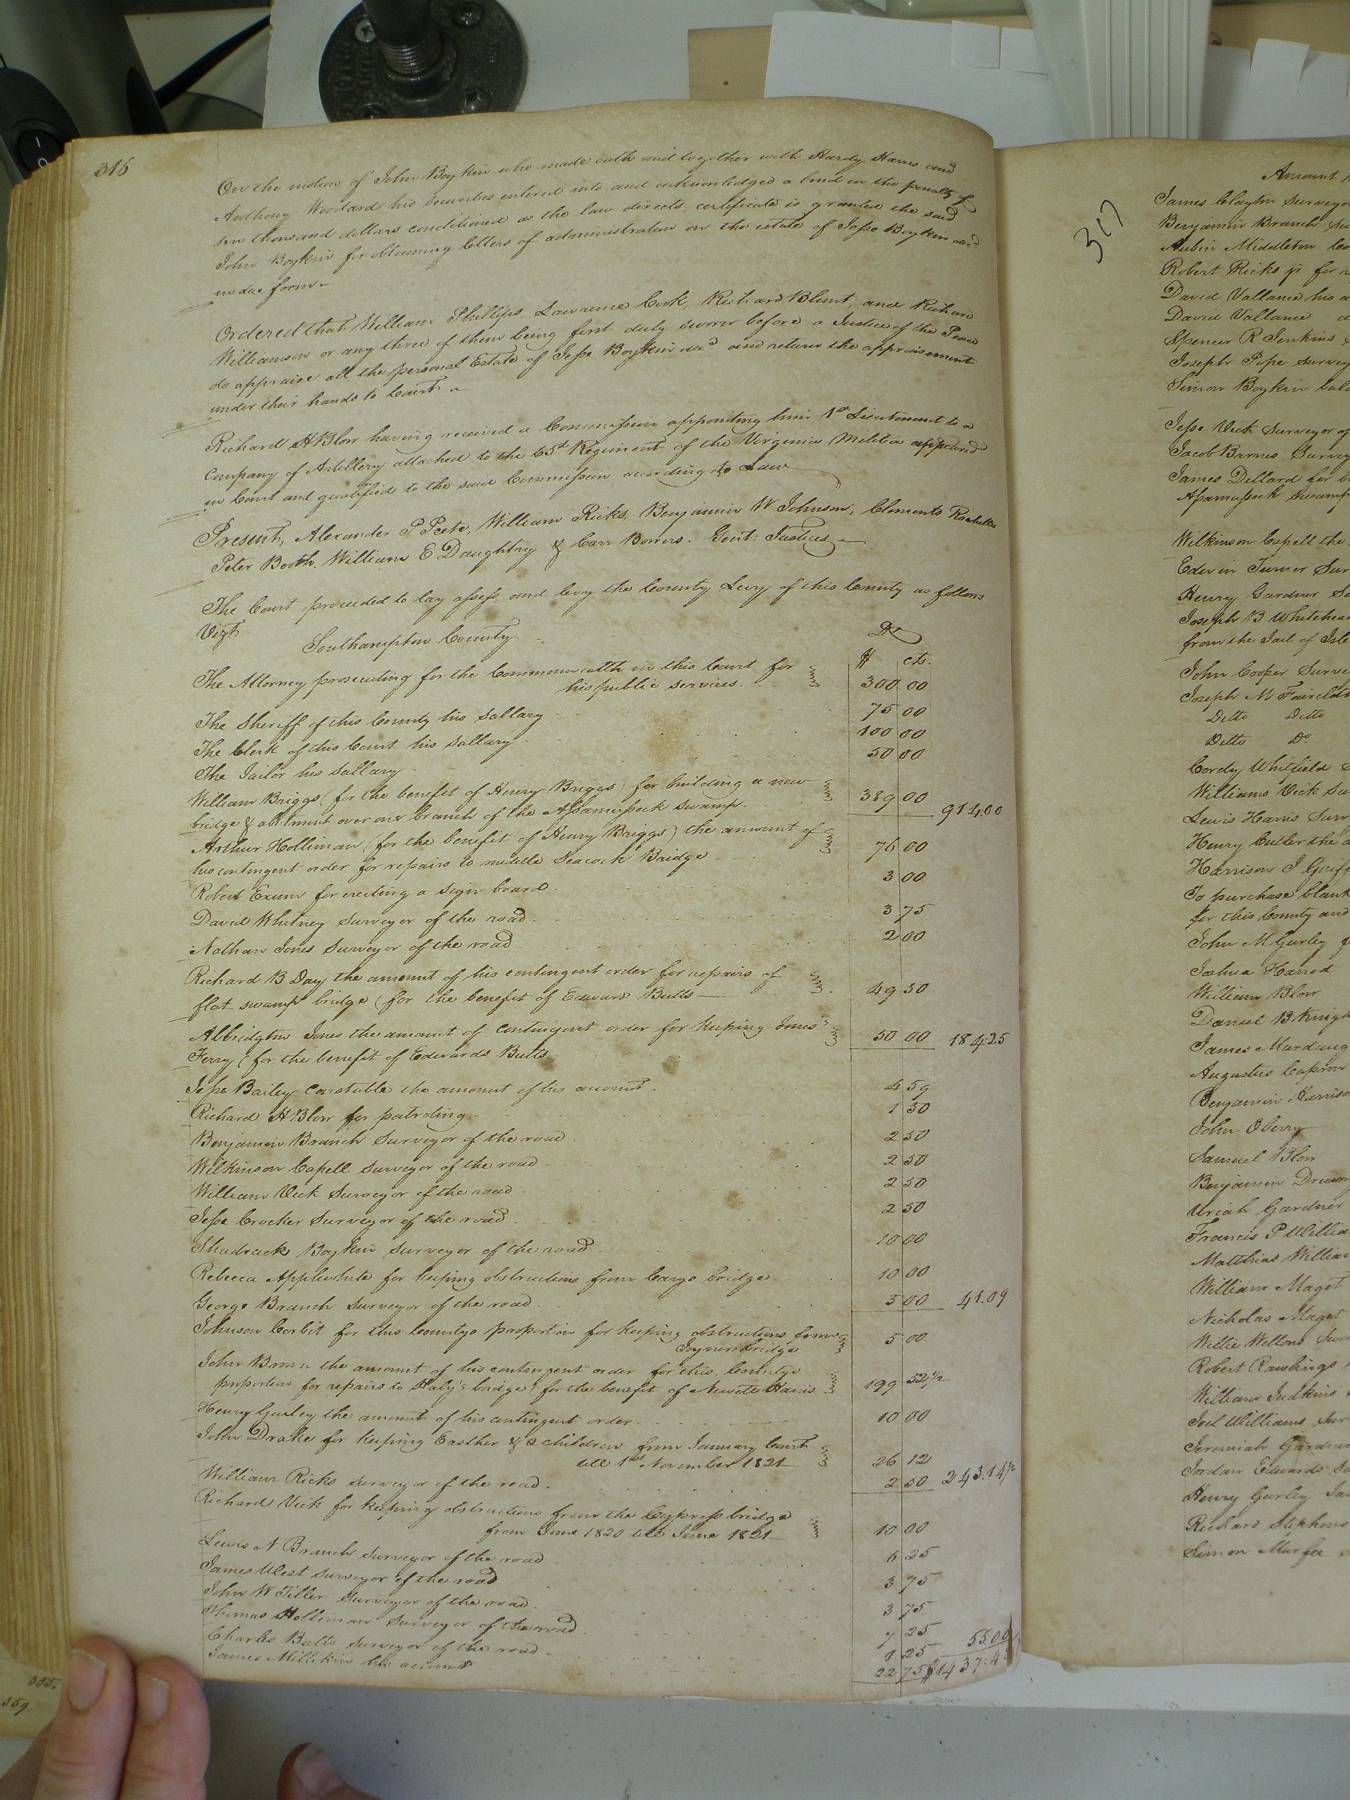 316
On the motion of John Boykin who made oath and together with Hardy Harris and
Anthony Woodard his securities entered into and acknowledged a bond in the penalty of
ten thousand dollars conditioned as the law directs, certificate is granted the said
John Boykin for obtaining letters of administration on the estate of Jesse Boykin decd
in due form
Ordered that William Phillips, Lawrence Cook, Richard Blunt, and Richard
Williamson or any three of them being first duly sworn before a Justice of the Peace
do appraise all the personal Estate of Jesse Boykin decd and return the appraisement
under their hands to Court
Richard H Blow having received a Commission appointing him 1st Lieutenant to a
company of Artillery attached to the 65th Regiment of the Virginia Militia appeared
in Court and qualified to the said Commission according to Law
Present, Alexander P Peete, William Ricks, Benjamin W Johnson, Clements Rochelle
Peter Booth, William E Daughtry & Carr Bowers. Gent: Justices
The Court proceeded to lay assess and levy the County Levy of this County as follows
Vizt Southampton County Dr
$ cts.
The Attorney prosecuting for the Commonwealth in this Court for
his public services. 300 00
The Sheriff of this County his sallary 75 00
The Clerk of this Court his sallary 100 00
The Jailor his sallary 50 00
William Briggs (for the benefit of Henry Briggs) for building a new
bridge & abutment over one branch of the Assamoosock swamp. 389 00 914.00
Arthur Holliman (for the benefit of Henry Briggs) the amount of
his contingent order for repairs to middle Seacock Bridge 76 00
Robert Exum for erecting a sign board 3 00
David Whitney surveyor of the road 3 75
Nathan Jones surveyor of the road 2 00
Richard B Day the amount of his contingent order for repairs of
flat swamp bridge (for the benefit of Edward Butts 49 50
Albridgton Jones the amount of contingent order for keeping Jones's
Ferry (for the benefit of Edwards Butts 50 00 184.25
Jesse Bailey Constable the amount of his account 4 59
Richard H Blow for patroling 1 50
Benjamin Branch surveyor of the road 2 50
Wilkinson Capell surveyor of the road 2 50
William Vick surveyor of the road 2 50
Jesse Crocker surveyor of the road 2 50
Shadrack Boykin surveyor of the road 10 00
Rebecca Applewhite for keeping obstructions from Carys bridge 10 00
George Branch surveyor of the road 5 00 41.09
Johnson Corbit for this Countys proportion for keeping obstructions from
Joyners bridge 5 00
John Brown the amount of his contingent order for this County's
proportion for repairs to Daly's bridge (for the benefit of Newitt Harris 199 52 1/2
Henry Gurley the amount of his contingent order 10 00
John Drake for keeping Easther & 2 children from January Court
till 1st November 1821 26 12
William Ricks surveyor of the road 2 50 243.14 1/2
Richard Vick for keeping obstructions from the Cypress bridge
from June 1820 till June 1821 10 00
Lewis N Branch surveyor of the road 6 25
James West surveyor of the road 3 75
John W Tiller surveyor of the road 3 75
Thomas Holliman surveyor of the road 7 25
Charles Butts surveyor of the road 1 25 55.00
James Millikin his account 22 75 $1437.4
317
Amount
James Clayton Surveyor
Benjamin Branch
Aubin Middleton
Robert Ricks jr for
David Vallance his
David Vallance
Spencer R Jenkins
Joseph Pope Survey
Simon Boykin
Jesse Vick Surveyor of
Jacob Barnes Survey
James Dillard for
Assamoosock swamp
Wilkinson Capell the
Edwin Turner Sur
Henry Gardner
Joseph B Whitehead
from the Jail of Isle
John Cooper Surve
Joseph M Fairchild
Ditto Ditto
Ditto Do
Cordy Whitfield
Williams Vick
Lewis Harris Surv
Henry Butler the
Harrison J Griff
To purchase blank
for this County and
John M Gurley
Joshua Harrod
William Blow
Daniel B Knigh
James Murdaug
Augustus Capron
Benjamin Harriso
John Oberry
Samuel Blow
Benjamin Drewry
Uriah Gardner
Francis P William
Matthias William
William Maget
Nicholas Maget
Willie Wellons
Robert Rawhings
William Judkins
Joel Williams Sur
Jeremiah Gardner
Jordan Edwards
Henry Gurley
Richard Stephens
Simon Murfee
359